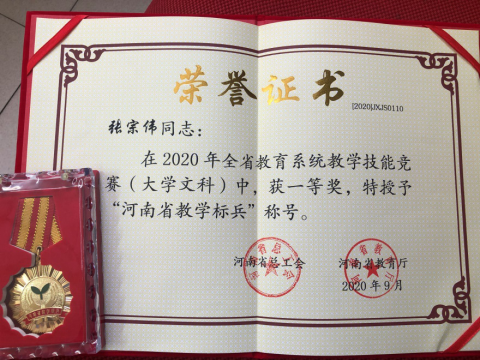 荣誉证书
[2020]JXJS0110
张宗伟同志：
在2020年全省教育系统教学技能竞
赛（大学文科）中，获一等奖，特授予
“河南省教学标兵”称号。
河南省总工会 河南省教育厅
2020年9月